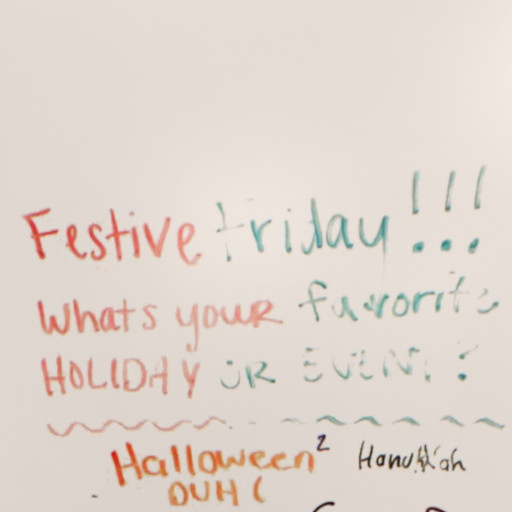 Festive friday!!!
Whats your favorite
HOLIDAY OR EVENT?
Halloween² Hanukkah
DUH(